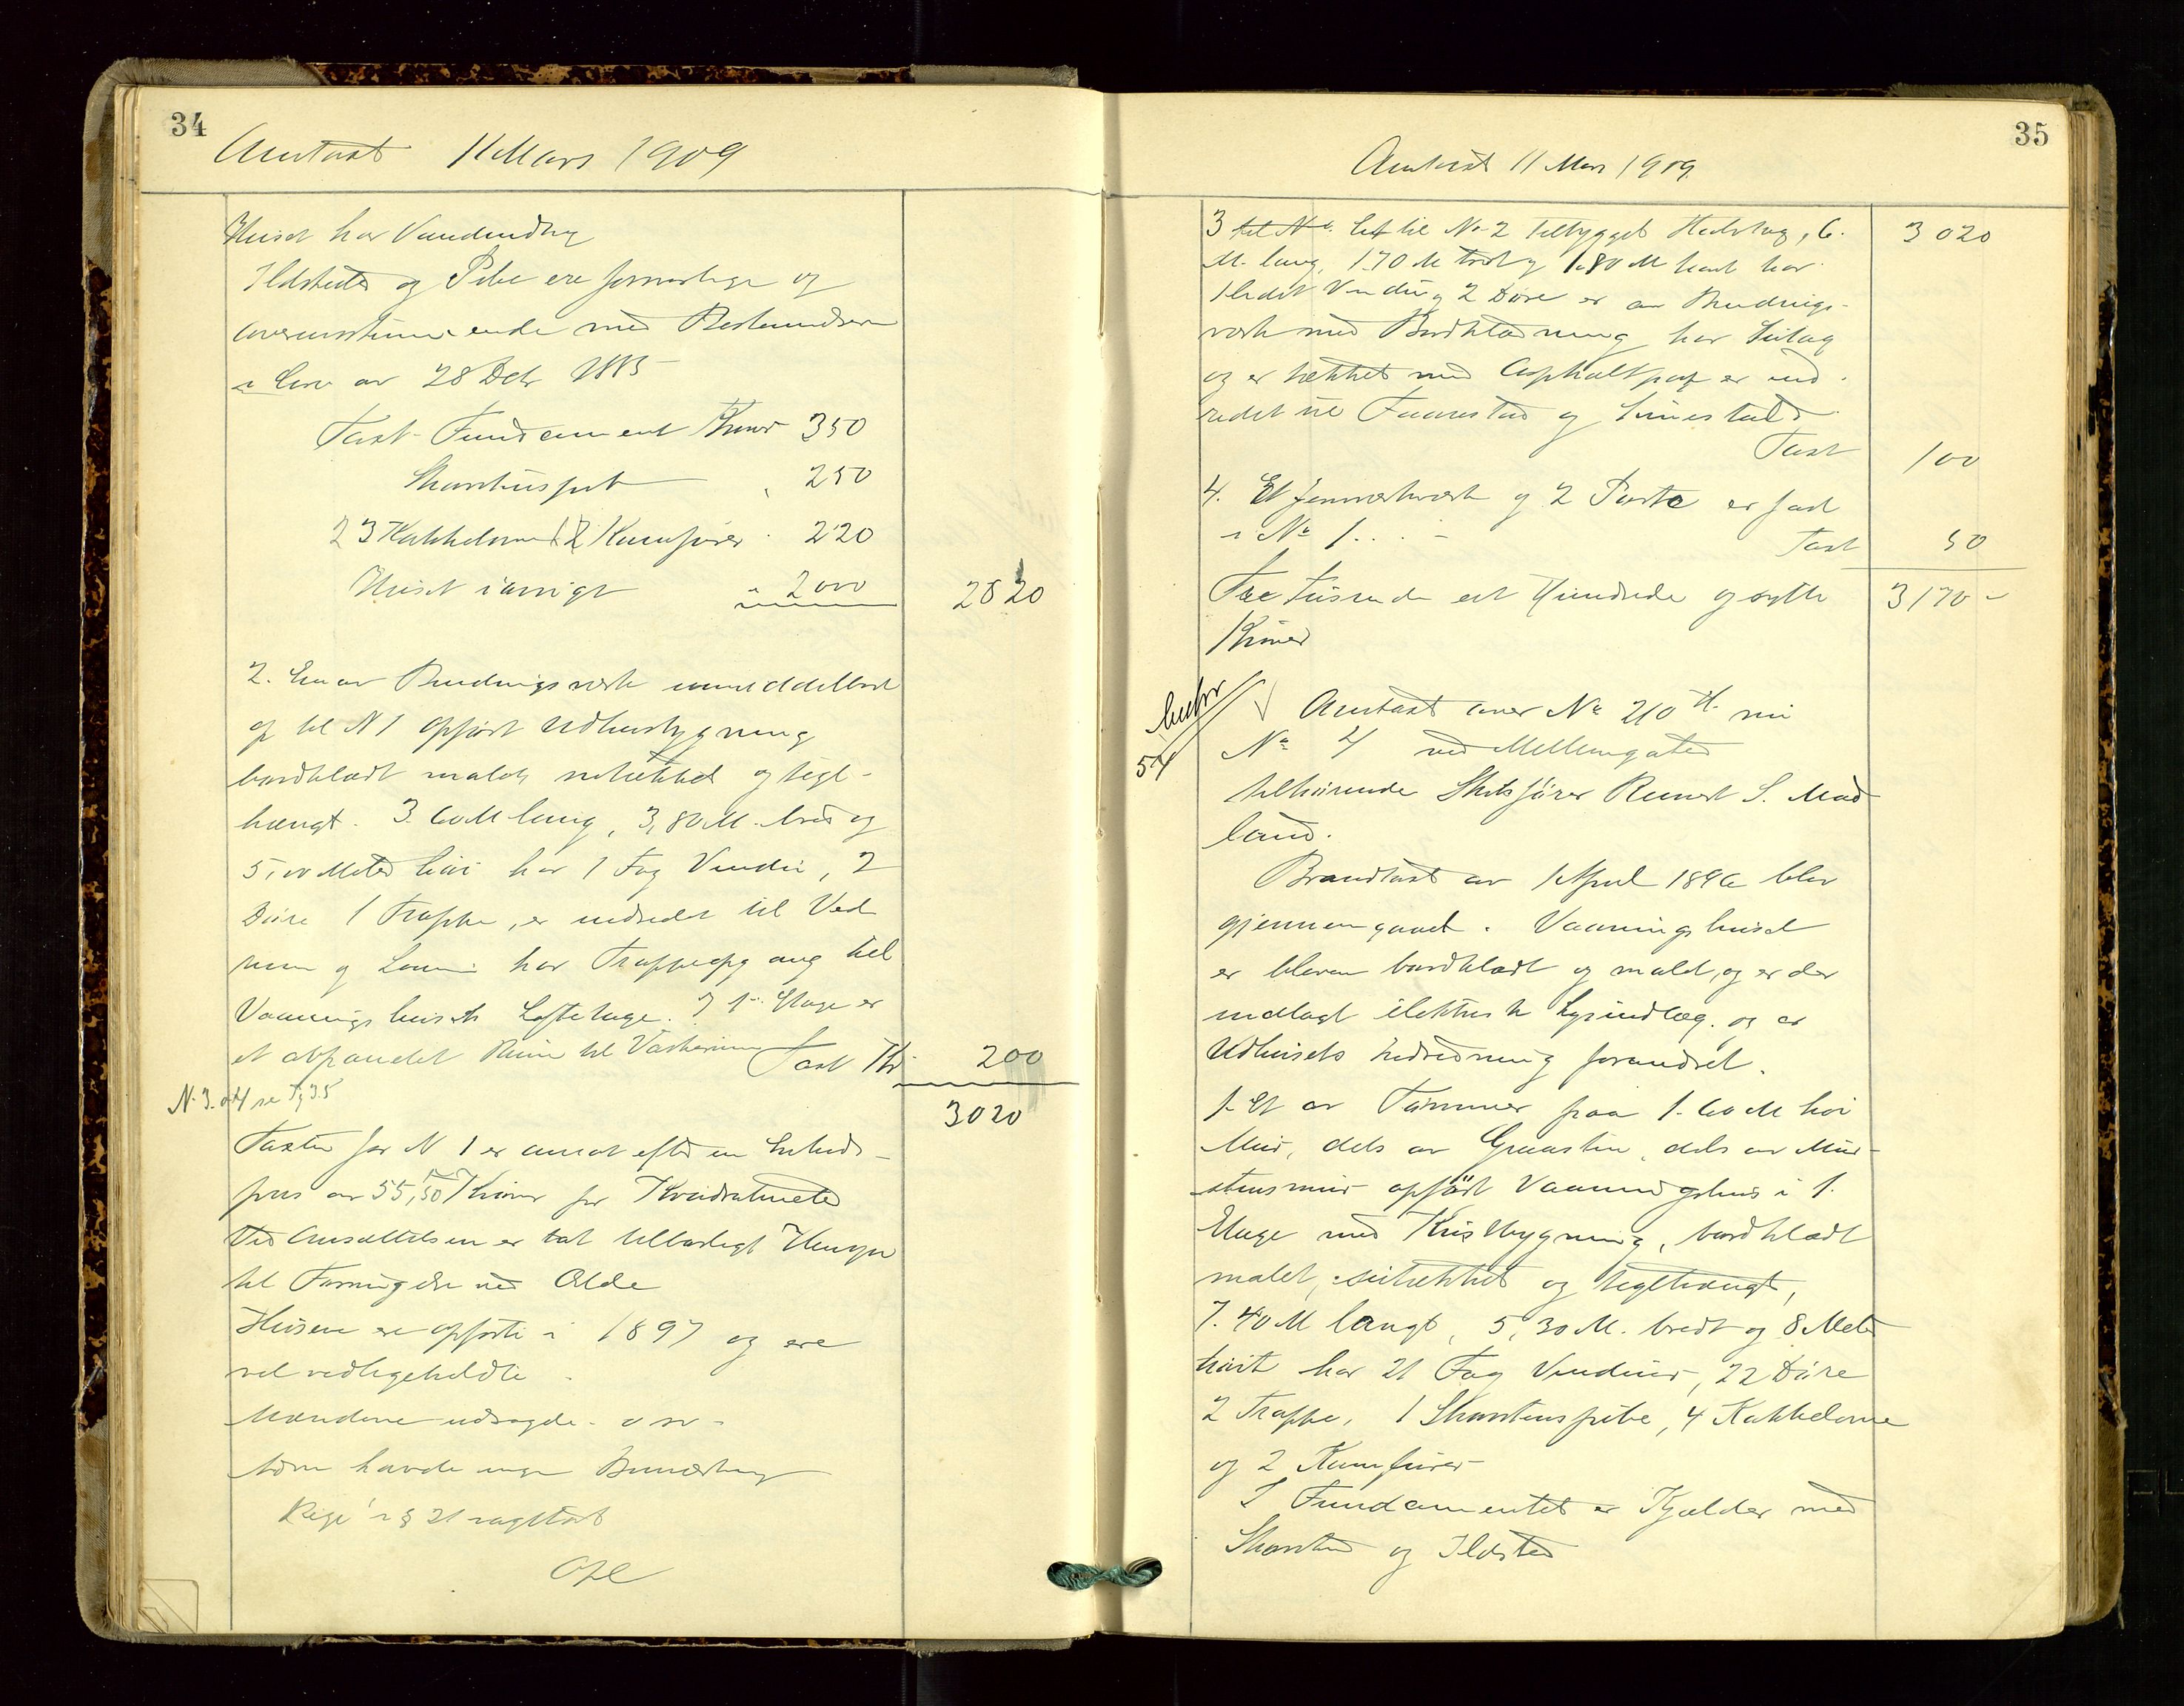 34
Omtaxt 11 Mars 1909
Huset har Vandindlæg
Ildsteder og Pibe ere forsvarlige og
overensstemmende med Bestemmelsen
i Lov av 28 Debr 1885
Taxt - Fundament Kroner 350
Skorstenspib " 250
3 Kakkelovne 2 Komfurer " 220
Huset iøvrigt " 2000 2820
2. En av Bindingsverk umiddelbart
op til N 1 opført Udhusbygning
bordklædt malet sutækket og tegl-
hængt. 3.60 M lang, 3,80 M. bred og
5,00 Meter høi har 1 Fag Vindu, 2
Døre 1 Trappe, er indredet til Ved
rum og har Trappeopgang til
Vaaningshusets Loftetage. I 1ste Etage er
et afpanelet Rum til Vaskerum Taxt Kr 200
N. 3. o 4 se Pg 35
3020
Taxten for N 1 er ansat efter en Enheds-
pris av 55,50 Kroner pr Kvadratmeter
Ved Ansættelsen er tat tilbørligt Hensyn
til Forringelse ved Ælde
Husene ere opførte i 1897 og ere
vel vedligeholdte.
Mændene udsagde - o sv -
som havde ingen Bemærkning
i § 21 vagttat
35
Omtaxt 11 Mars 1909.
3 Et til No 2 tilbygget Halvtag, 6. 3020
M. lang, 1.70 M bred og 1.80 M høit har
1 Vindu og 2 Døre er av Bindings-
verk med Bordklædning har Sutag
og er tækket med Asphaltpap er ind-
redet til og
Taxt 100
4. Et Jernrækverk og 2 Porte er fast
i No 1. . . - Taxt 50
Tre tusende et Hundrede og sytti 3170 -
Kroner
54
Omtaxt over No 210 H. nu
No 4 ved Mellemgaten
tilhørende Skibsfører Reinert S. Mad
land.
Brandtaxt av 1 April 1896 blev
gjennemgaaet. Vaaningshuset
er bleven bordklædt og malet, og er der
indlagt elektrisk Lysindlæg. og er
Udhusets Indredning forandret.
1. Et av Tømmer paa 1.60 M høi
Mur, dels av Graasten, dels av Mur-
stensmur opført Vaaningshus i 1.
Etage med Kvistbygning, bordklædt
malet, sutækket og teglhængt,
7.40 M langt, 5,30 M. bredt og 8 Meter
høit har 21 Fag Vinduer, 22 Døre
2 Trapper, 1 Skorstenspibe, 4 Kakkelovne
og 2 Komfurer
I Fundamentet er Kjelder med
Skorsten og Ildsted